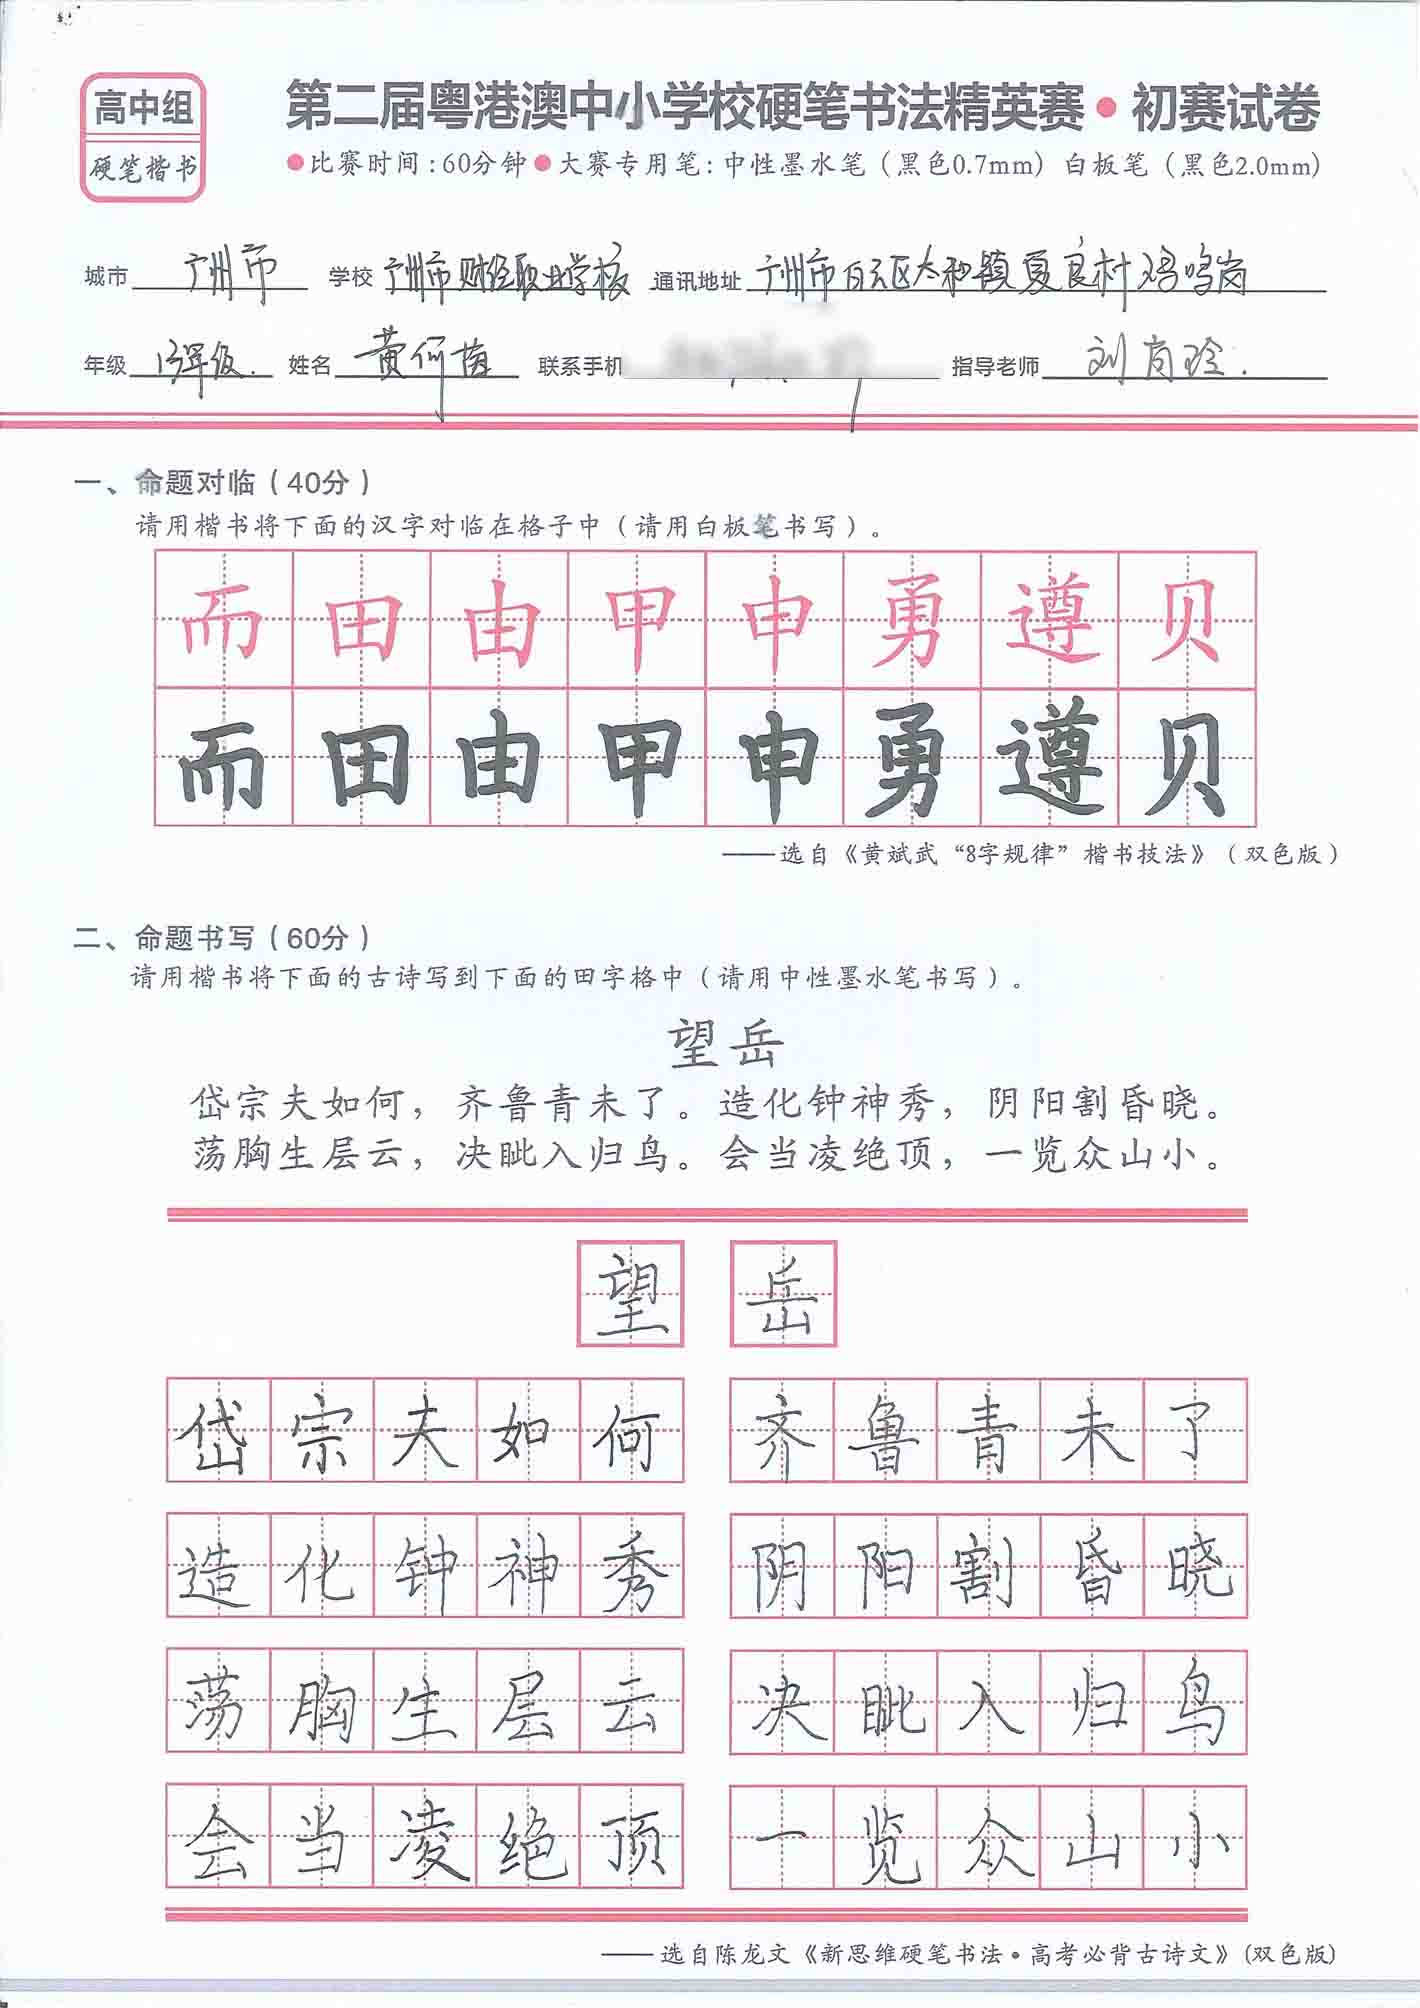 高中组
硬笔楷书
第二届粤港澳中小学校硬笔书法精英赛•初赛试卷
●比赛时间:60分钟●大赛专用笔:中性墨水笔（黑色0.7mm）白板笔（黑色2.0mm）
城市 广州市 学校 广州市财经职业学校 通讯地址 广州市白云区太和镇夏良村鸡鸣岗
年级 13年级. 姓名 黄何茵 联系手机 指导老师 刘岗玲.
一、命题对临（40分）
请用楷书将下面的汉字对临在格子中（请用白板笔书写）。
而田由甲申勇遵贝
而田由甲申勇遵贝
——选自《黄斌武“8字规律”楷书技法》（双色版）
二、命题书写（60分）
请用楷书将下面的古诗写到下面的田字格中（请用中性墨水笔书写）。
望岳
岱宗夫如何，齐鲁青未了。造化钟神秀，阴阳割昏晓。
荡胸生层云，决眦入归鸟。会当凌绝顶，一览众山小。
望岳
岱宗夫如何 齐鲁青未了
造化钟神秀 阴阳割昏晓
荡胸生层云 决眦入归鸟
会当凌绝顶 一览众山小
——选自陈龙文《新思维硬笔书法·高考必背古诗文》(双色版)